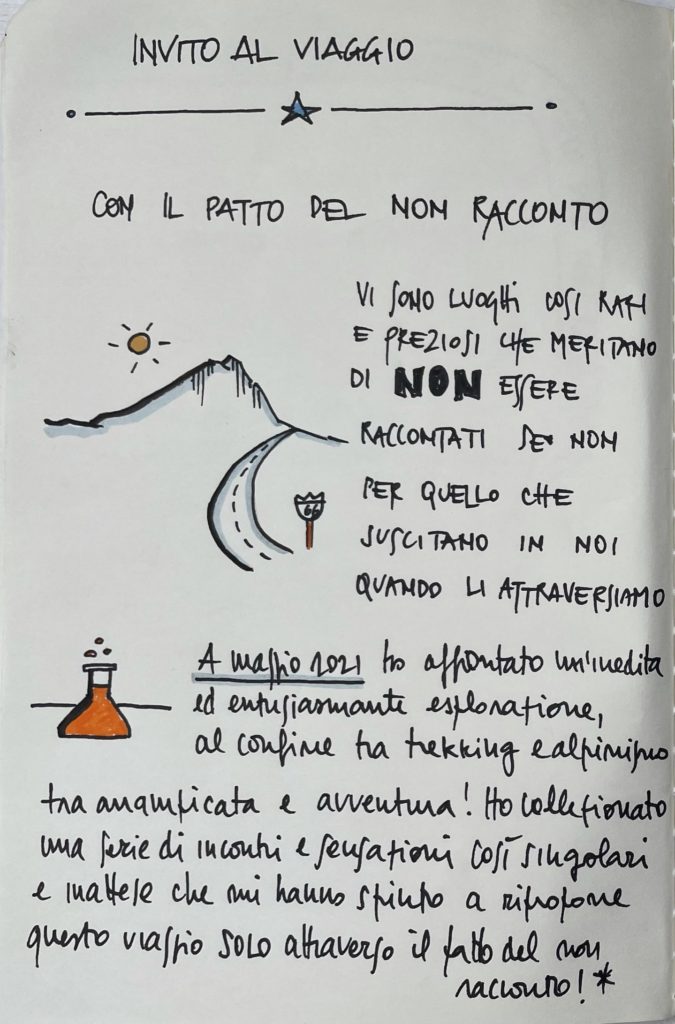 INVITO AL VIAGGIO
CON IL PATTO DEL NON RACCONTO
VI SONO LUOGHI COSI RARI
E PREZIOSI CHE MERITANO
DI NON ESSERE
RACCONTATI SE NON
PER QUELLO CHE
SUSCITANO IN NOI
QUANDO LI ATTRAVERSIAMO
66
A maggio 2021 ho affrontato un'inedita
ed entusiasmante esplorazione,
al confine tra trekking e alpinismo
tra arrampicata e avventura! Ho collezionato
una serie di incontri e sensazioni così singolari
e inattese che mi hanno spinto a riproporre
questo viaggio solo attraverso il patto del non
racconto! *